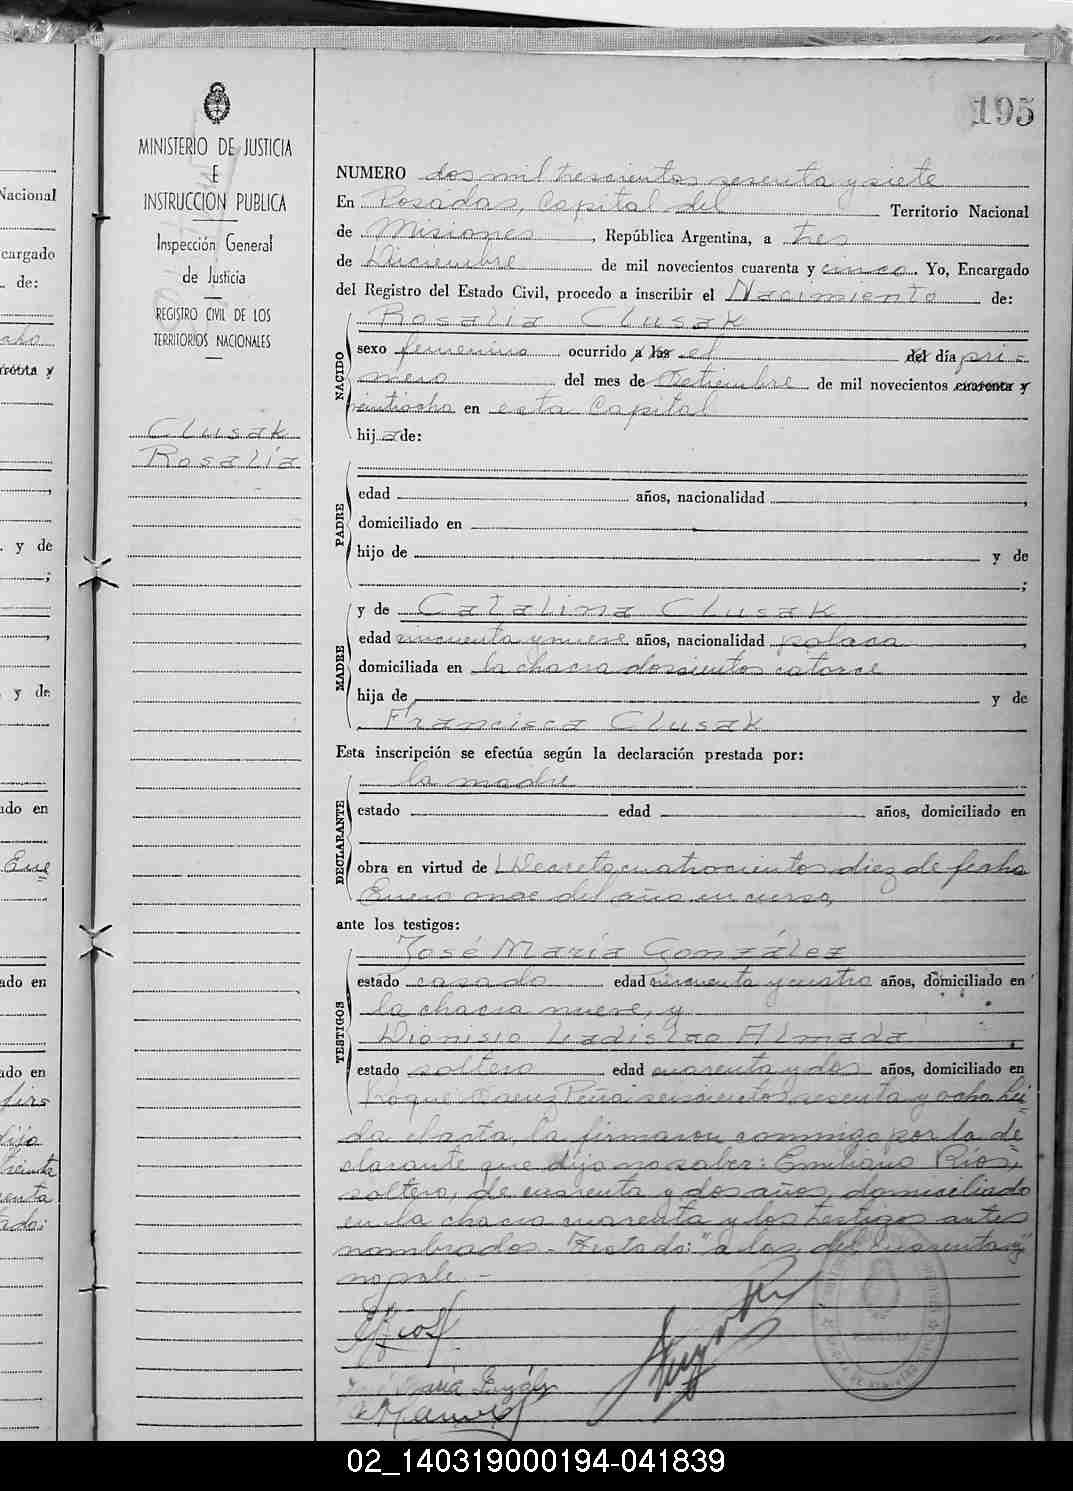 195
MINISTERIO DE JUSTICIA
E
INSTRUCCION PUBLICA
Inspección General
de Justicia
REGISTRO CIVIL DE LOS
TERRITORIOS NACIONALES
Clusak
Rosalía
Nacional
cargado
de:
y de
y de
ado en
Ene
ado en
ado en
NUMERO dos mil trescientos sesenta y siete
En Posadas, Capital del Territorio Nacional
de Misiones, República Argentina, a tres
de Diciembre de mil novecientos cuarenta y cinco. Yo, Encargado
del Registro del Estado Civil, procedo a inscribir el Nacimiento de:
NACIDO
Rosalía Clusak
sexo femenino ocurrido a las el del día pri-
mero del mes de Setiembre de mil novecientos cuarenta y
veintiocho en esta Capital
hija de:
PADRE
edad años, nacionalidad ,
domiciliado en
hijo de y de
;
MADRE
y de Catalina Clusak
edad cincuenta y nueve años, nacionalidad polaca,
domiciliada en la chacra doscientos catorce
hija de y de
Francisca Clusak
Esta inscripción se efectúa según la declaración prestada por:
DECLARANTE
la madre
estado edad años, domiciliado en
obra en virtud de Decreto cuatrocientos diez de fecha
Enero once del año en curso,
ante los testigos:
TESTIGOS
José María González
estado casado edad cincuenta y cuatro años, domiciliado en
la chacra nueve, y
Dionisio Ladislao Almada
estado soltero edad cuarenta y dos años, domiciliado en
Roque Saenz Peña seiscientos sesenta y ocho. Leí-
da el acta, la firmaron conmigo por la de-
clarante que dijo no saber: Emiliano Ríos,
soltero, de cuarenta y dos años, domiciliado
en la chacra cuarenta y los testigos antes
nombrados.- Testado: "a las, del, cuarenta y"
no vale.-
02_140319000194-041839